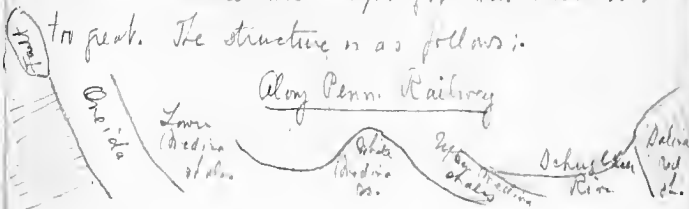 too great. The structure is as follows:
Along Penn. Railway
Fault
Oneida
Lower
Medina
shales.
White
Medina
ss.
Upper Medina
shales
Schuylkill
River
Salina
red
sh.